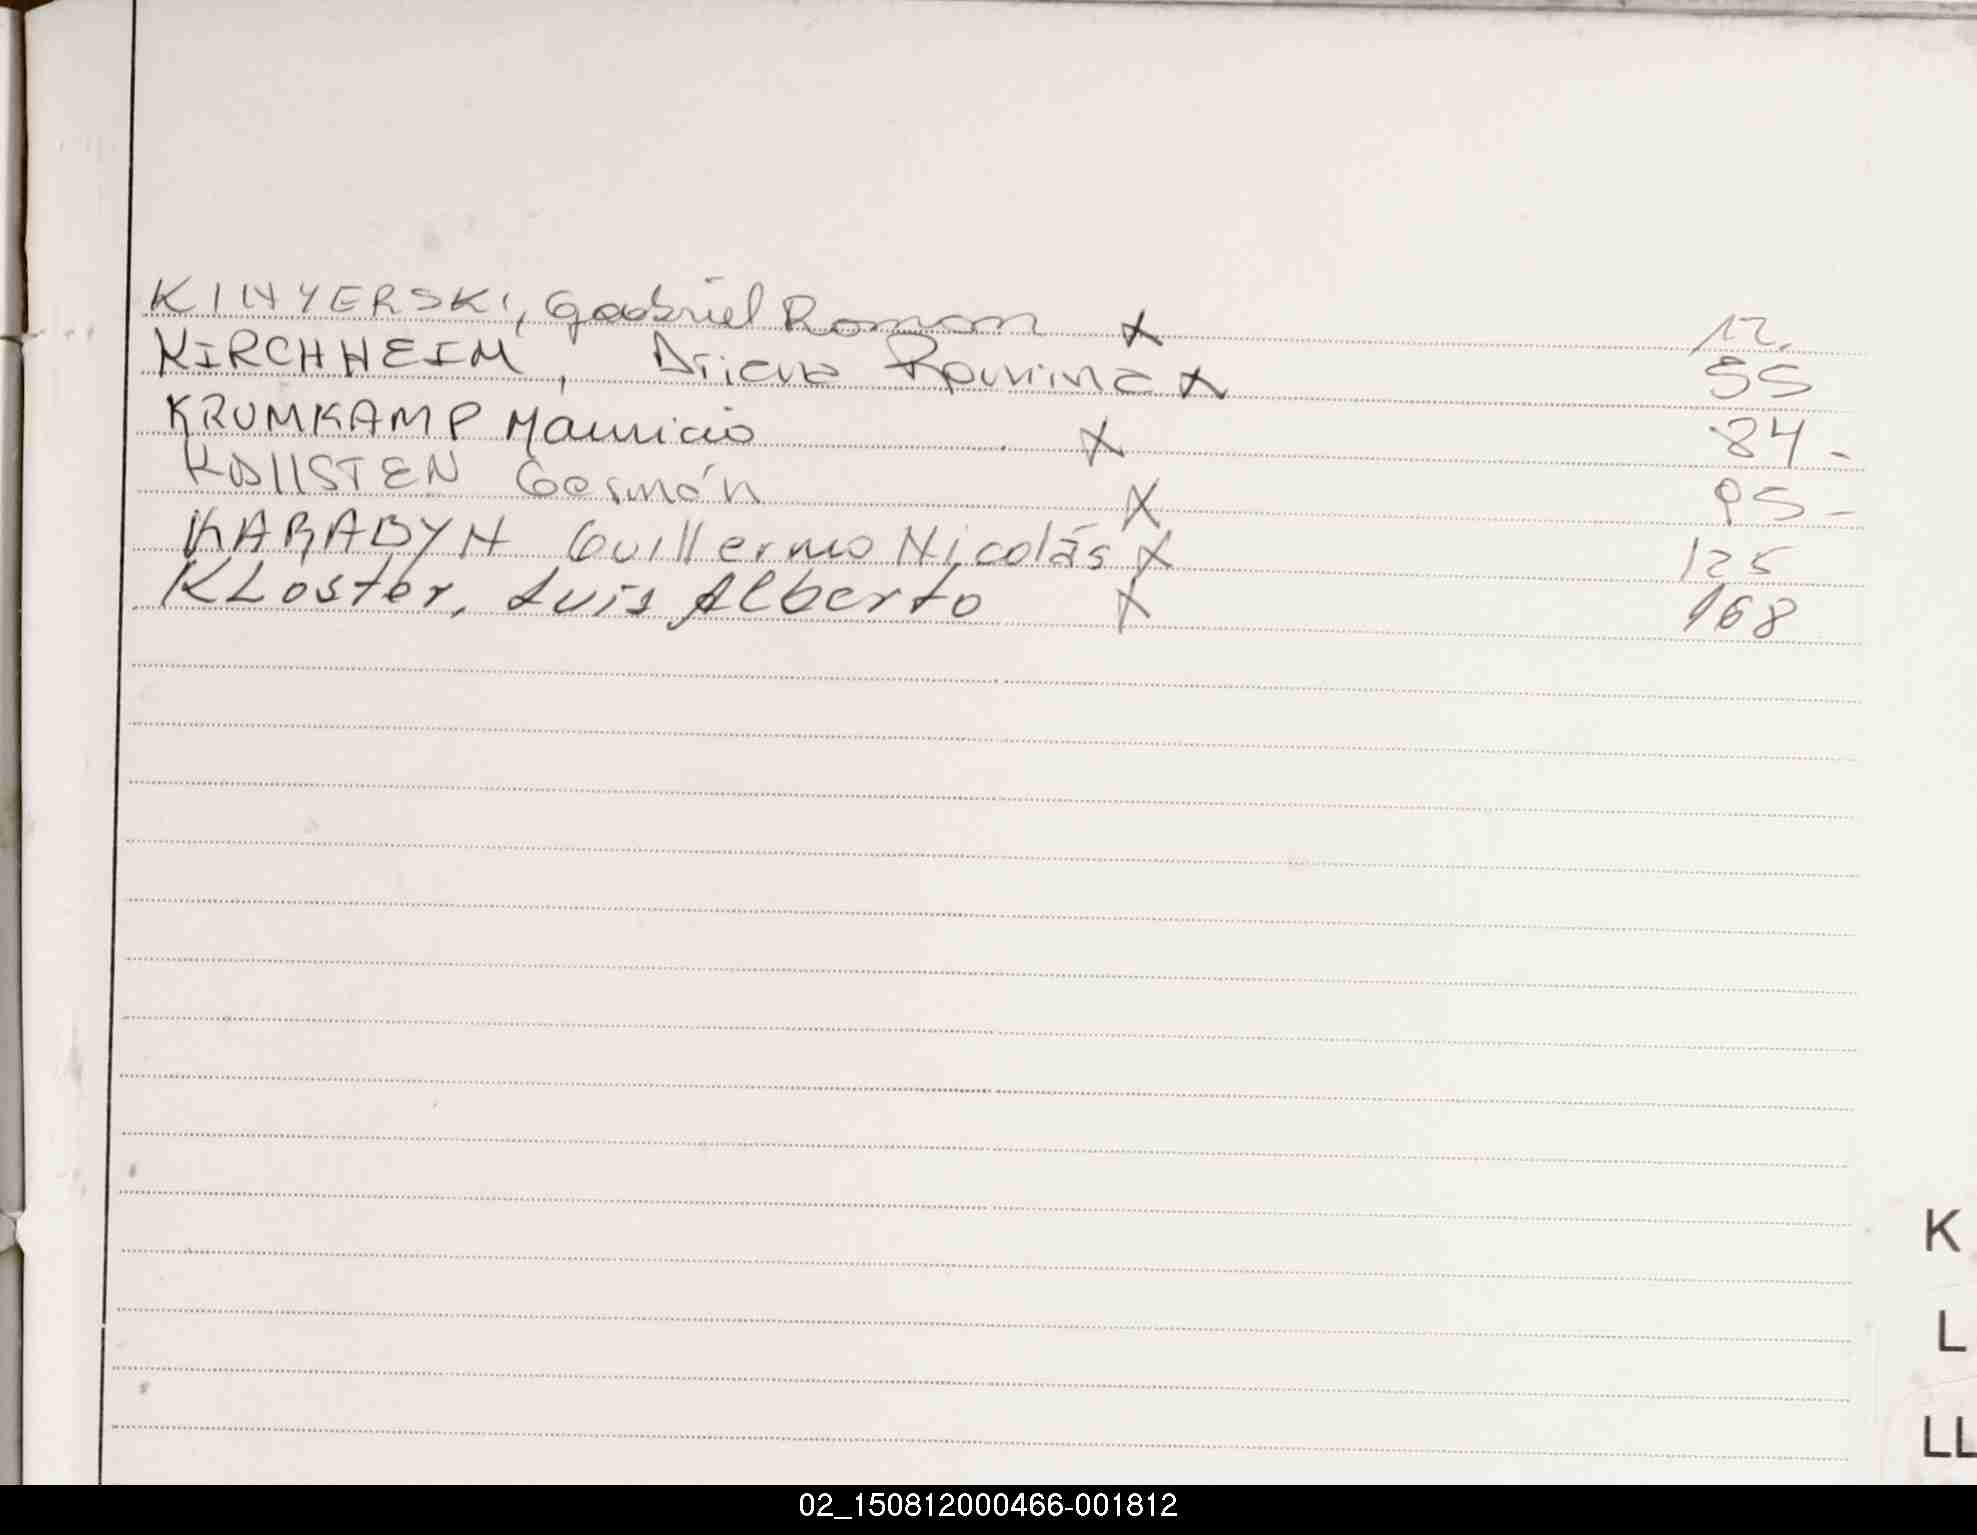 KINYERSKI, Gabriel Roman X 12.
KIRCHHEIM, X 55
KRUMKAMP Mauricio X 84 -
KALLSTEN Germán X 95 -
KARABYN Guillermo Nicolás X 125
KLoster, Luis Alberto X 168
K
L
LL
02_150812000466-001812